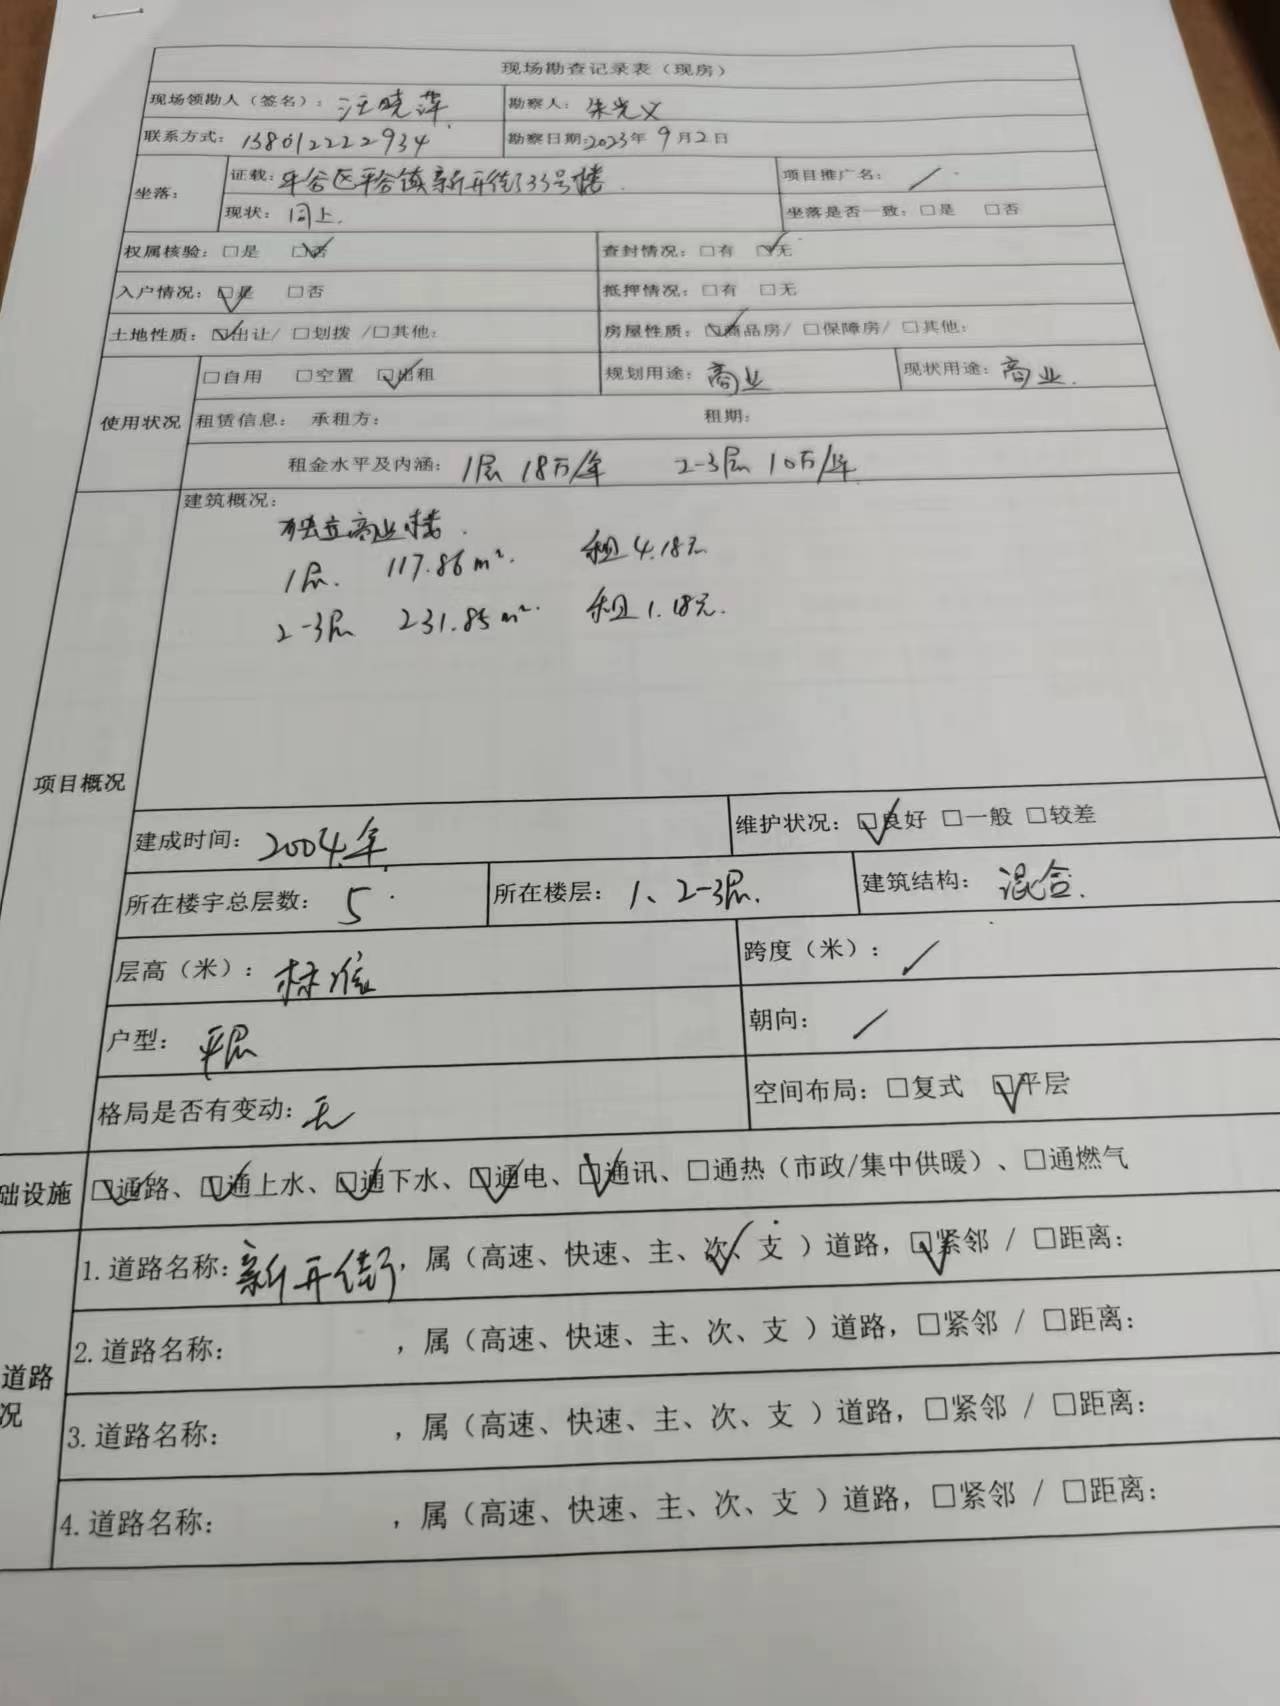 现场勘查记录表（现房）
现场领勘人（签名）：汪晓萍 勘察人：朱光义
联系方式：13801222934 勘察日期:2023年 9月2日
坐落： 证载：平谷区平谷镇新开街33号楼 项目推广名： /
现状：同上. 坐落是否一致：□是 □否
权属核验：□是 ☑否 查封情况：□有 ☑无
入户情况：☑是 □否 抵押情况：□有 □无
土地性质：☑出让/ □划拨 /□其他： 房屋性质：☑商品房/ □保障房/ □其他：
使用状况 □自用 □空置 ☑出租 规划用途：商业 现状用途：商业.
租赁信息： 承租方： 租期：
租金水平及内涵： 1层 18万/年 2-3层 10万/年
项目概况 建筑概况：
独立商业楼.
1层. 117.86m². 租4.18元
2-3层 231.85m². 租1.18元.
建成时间：2004年 维护状况：☑良好 □一般 □较差
所在楼宇总层数： 5 所在楼层：1、2-3层. 建筑结构： 混合.
层高（米）：标准 跨度（米）： /
户型： 平层 朝向： /
格局是否有变动：无 空间布局：□复式 ☑平层
础设施 ☑通路、☑通上水、☑通下水、☑通电、☑通讯、□通热（市政/集中供暖）、□通燃气
道路
况
1.道路名称：新开街，属（高速、快速、主、次✓、支 ）道路，☑紧邻 / □距离：
2.道路名称： ，属（高速、快速、主、次、支 ）道路，□紧邻 / □距离：
3.道路名称： ，属（高速、快速、主、次、支 ）道路，□紧邻 / □距离：
4.道路名称： ，属（高速、快速、主、次、支 ）道路，□紧邻 / □距离：